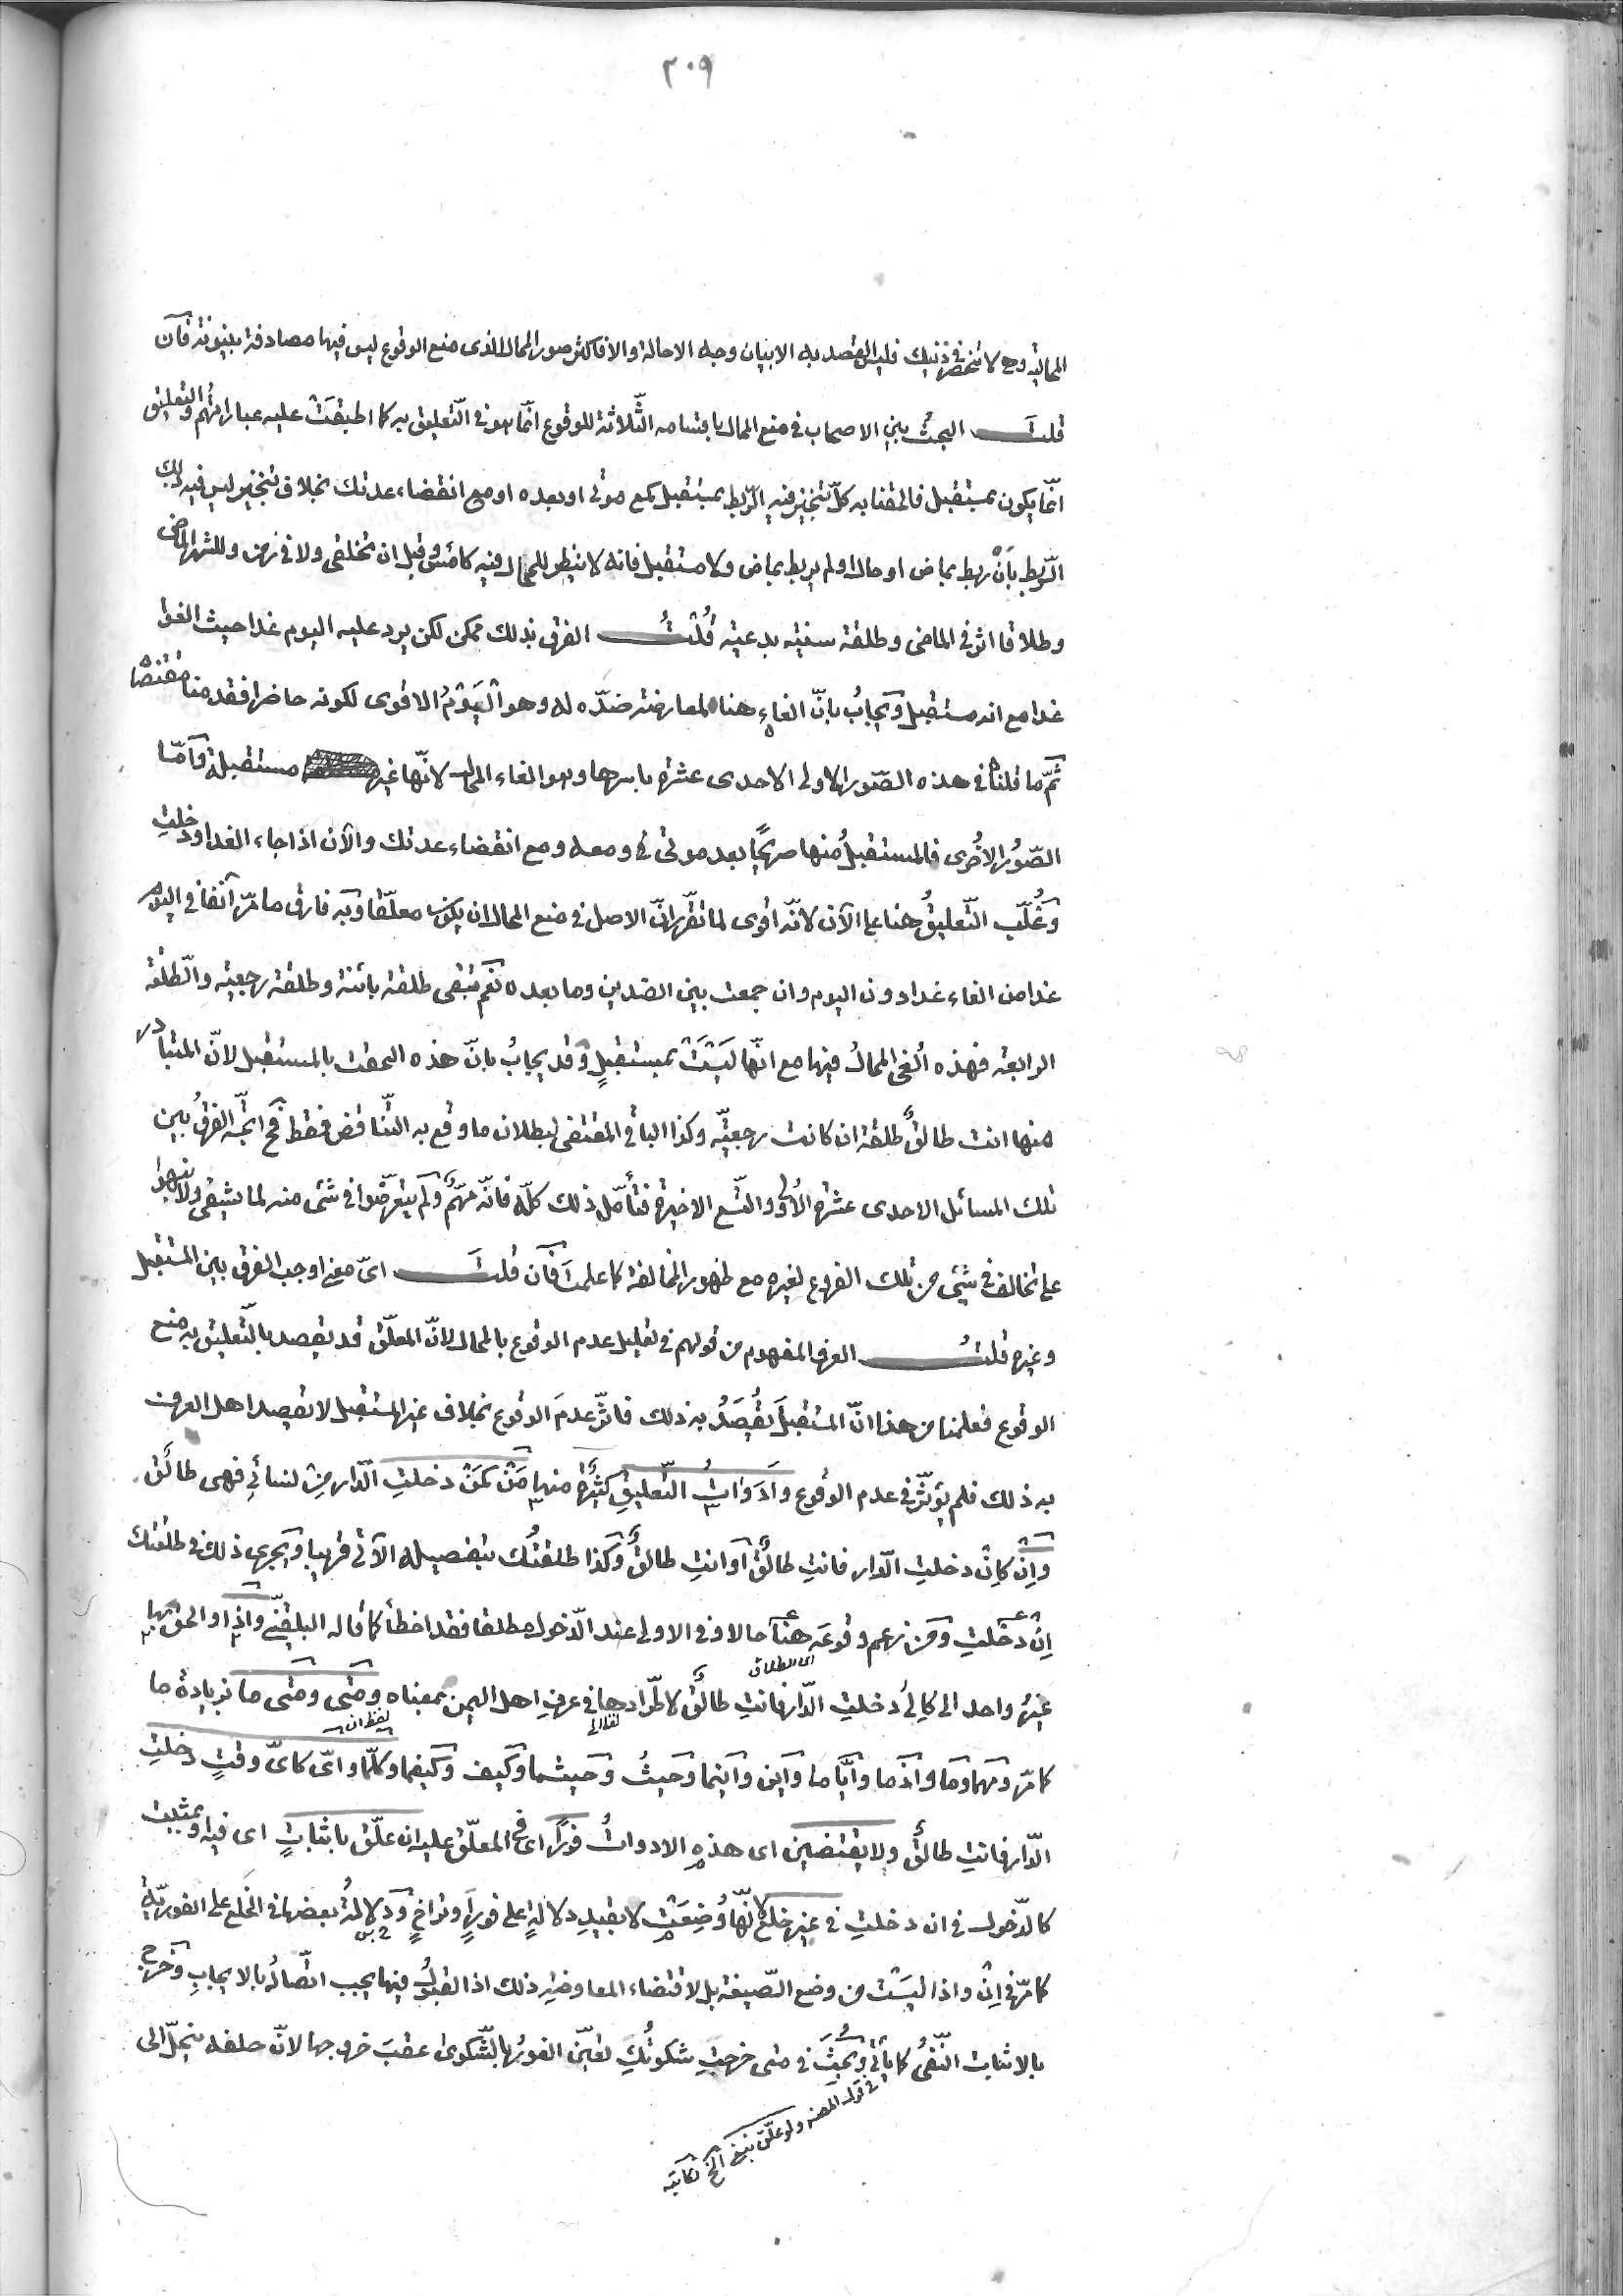 ٢٠٩
المحاليه وح لا تنحصر في ذينك فليس القصد به الا بيان وجه الاحالة والا فاكثر صور المحال الذى منع الوقوع ليس فيها مصادفة بينونة فان
قلت البحث بين الاصحاب في منع المحال باقسامه الثّلاثة للوقوع انّما هو في التّعليق به كما اطبقت عليه عباراتهم والتعليق
انّما يكون بمستقبل فالحقنا به كلّ تنجيز فيه الرّبط بمستقبل كمع موتى او بعده او مع انقضاء عدتك بخلاف تنجيز ليس فيه ذلك
الرّبط بأن ربط بماض او حال او لم يربط بماض ولا مستقبل فانه لا ينظر للمحال فيه كامس وقبل ان تخلقى ولا في زمن وللشهر الماضى
وطلاقا اثر في الماضى وطلقة سنيّه بدعيّه قُلْتُ الفرق بذلك ممكن لكن يرد عليه اليوم غدا حيث الغوا
غدا مع انه مستقبل ويجابُ بانّ الغاءه هنا لمعارضة ضدّه له وهو اليَوْمُ الاقوى لكونه حاضرا فقدمنا مقتضاه
ثمّ ما قلناه في هذه الصّور الاولى الاحدى عشرة باسرها وهو الغاء المحال لانّها غير مستقبلة وامّا
الصّوُر الاُخرى فالمستقبلُ منها صريحًا بعد موتى و معه ومع انقضاء عدتك والآن اذا جاء الغد او دخلتِ
وغُلّب التّعليقُ هنا على الآن لانّه اقوى لما تقرّر انّ الاصل في منع المحال ان يكون معلّقا وبه فارق ما مرّ آنفا في اليوم
غدا من الغاء غدا دون اليوم وان جمعت بين الضدين وما بعده نعم تبقى طلقة بائنة وطلقة رجعيّه والطّلقة
الرابعة فهذه اُلغى المحالُ فيها مع انّها ليسَتْ بمستقبلٍ وقد يجابُ بانّ هذه التحقت بالمستقبل لانّ المتبادر
منها انت طالقٌ طلقة ان كانت رجعيّه وكذا الباقى المقتضى لبطلان ما وقع به التّناقض فقط فح اتّجه الفرقُ بين
تلك المسائل الاحدى عشرة الاُولى والتّسع الاخيرة فتأمّل ذلك كلّه فانّه مهّم ولم يتعرّضوا في شئ منه لما يشفى ولا نبهوا
على تخالف في شئ من تلك الفروع لغيره مع ظهور المخالفة كما علمتَ فان قلتَ اىّ معنى اوجب الفرق بين المستقبل
وغيره قلتُ العرف المفهوم من قولهم في تعليل عدم الوقوع بالمحال لانّ المعلّق قد يقصد بالتّعليق به منع
الوقوع فعلمنا من هذا انّ المستقبلَ يُقصَدُ به ذلك فاثّر عدمَ الوقوع بخلاف غير المستقبل لا يقصد اهل العرف
به ذلك فلم يؤثّر في عدم الوقوع وَاَدَوَاتُ التّعليقِ كثيرة منها مَنْ كمَنْ دخلتِ الدّار من نسائي فهى طالق
وإِن كإِن دخلتِ الدّار فانتِ طالقٌ او انتِ طالقٌ وكذا طلقتُك بتفصيله الآتى قريبا ويجرى ذلك في طلقتك
إنْ دخلتِ ومن زعم وقوعَه هنا حالا وفى الاولى عند الدّخول مطلقا فقد اخطأ كما قاله البلقينى واِذا والحق بها
غيرُ واحد الى كاِلى دخلتِ الدّار فانتِ طالقٌ لاطّرادها في عرف اهل اليمن بمعناه ومَتَى ومَتَى ما بزيادة ما
اى الطلاق
كما مرّ ومهما وما واذما وايّا ما واين واينما وحيثُ وحيثما وكيف وكيفما وكلّما واىّ كاىّ وقتٍ دخلتِ
الدّار فانتِ طالقٌ ولا يقتضين اى هذه الادواتُ فورًا اى في المعلّق عليه ان علّق باثباتٍ اى فيه وبمثبت
كالدّخول في ان دخلتِ في غير خلع لانّها وُضِعَتْ لا بقيدِ دلالةٍ على فورٍ او تراخٍ ودلالةُ بعضها في الخُلع على الفوريّة
كما مرّ في إِنْ واذا ليسَتْ من وضع الصّيغة بل لاقتضاء المعاوضة ذلك اذ القبولُ فيها يجب اتّصالُه بالايجابِ وخرج
بالاثبات النّفىُ كما يأتى وبحُثَ في متى خرجتِ شكوتُكِ تعيّن الفورُ بالشّكوى عقبَ خروجها لانّ حلفه ينحلّ الى
في قول المصنف ولو علّق بنفى الخ لكاتبه